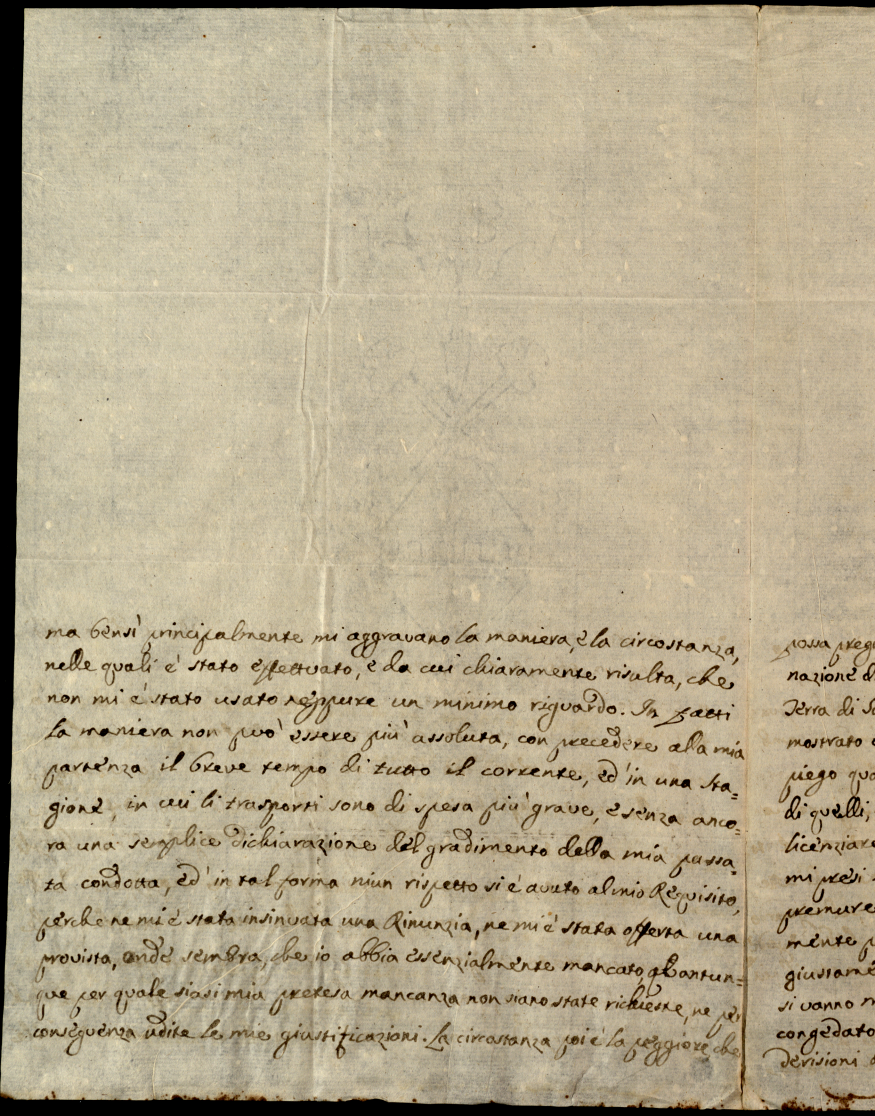 ma bensì principalmente mi aggravano la maniera, e la circostanza,
nelle quali è stato effettuato, e da cui chiaramente risulta, che
non mi è stato usato neppure un minimo riguardo. In fatti
la maniera non può essere più assoluta, con precedere alla mia
partenza il breve tempo di tutto il corrente, ed in una sta=
gione, in cui li trasporti sono di spesa più grave, e senza anco=
ra una semplice dichiarazione del gradimento della mia passa=
ta condotta, ed in tal forma niun rispetto si è avuto al mio Requisito,
perche ne mi è stata insinuata una Rinunzia, ne mi è stata offerta una
provista, onde sembra, che io abbia essenzialmente mancato quantun=
que per quale siasi mia pretesa mancanza non siano state richieste, ne per
conseguenza udite le mie giustificazioni. La circostanza poi è la peggiore che
possa preg
nazione d
Terra di S
mostrato
piego qua
di quelli,
licenziare
mi presi
premure
mente p
giustame
si vanno m
congedato
derisioni